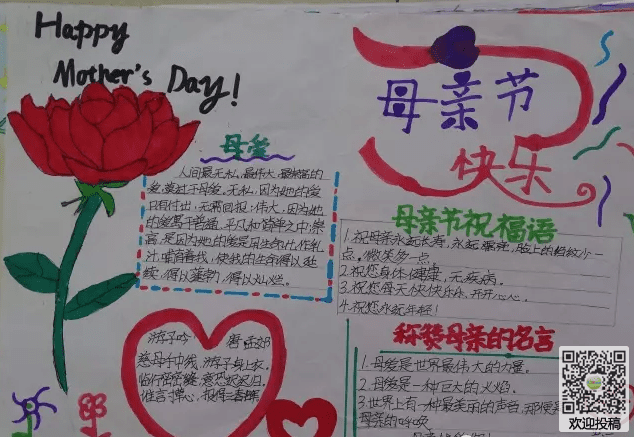 Happy
Mother's Day!
母亲节
快乐
母爱
人间最无私、最伟大、最崇高的
爱,莫过于母爱。无私,因为她的爱
只有付出,无需回报;伟大,因为她
的爱寓于普通、平凡和简单之中;崇
高,是因为她的爱是用生命化作乳
汁,哺育着我,使我的生命得以延
续,得以蓬勃,得以灿烂。
母亲节祝福语
1.祝母亲永远长寿,永远健康,脸上的皱纹少一
点,微笑多一点。
2.祝您身体健康,无疾病。
3.祝您每天快快乐乐,开开心心。
4.祝您永远年轻!
游子吟 唐 孟郊
慈母手中线,游子身上衣。
临行密密缝,意恐迟迟归。
谁言寸草心,报得三春晖
称赞母亲的名言
1.母爱是世界最伟大的力量。
2.母爱是一种巨大的火焰。
3.世界上有一种最美丽的声音,那便是
母亲的呼唤
欢迎投稿